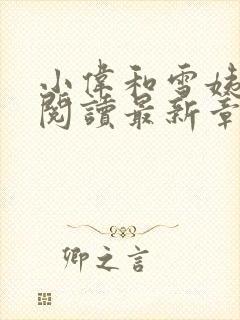 小偉和雪姨
閱讀最新章
卿之言